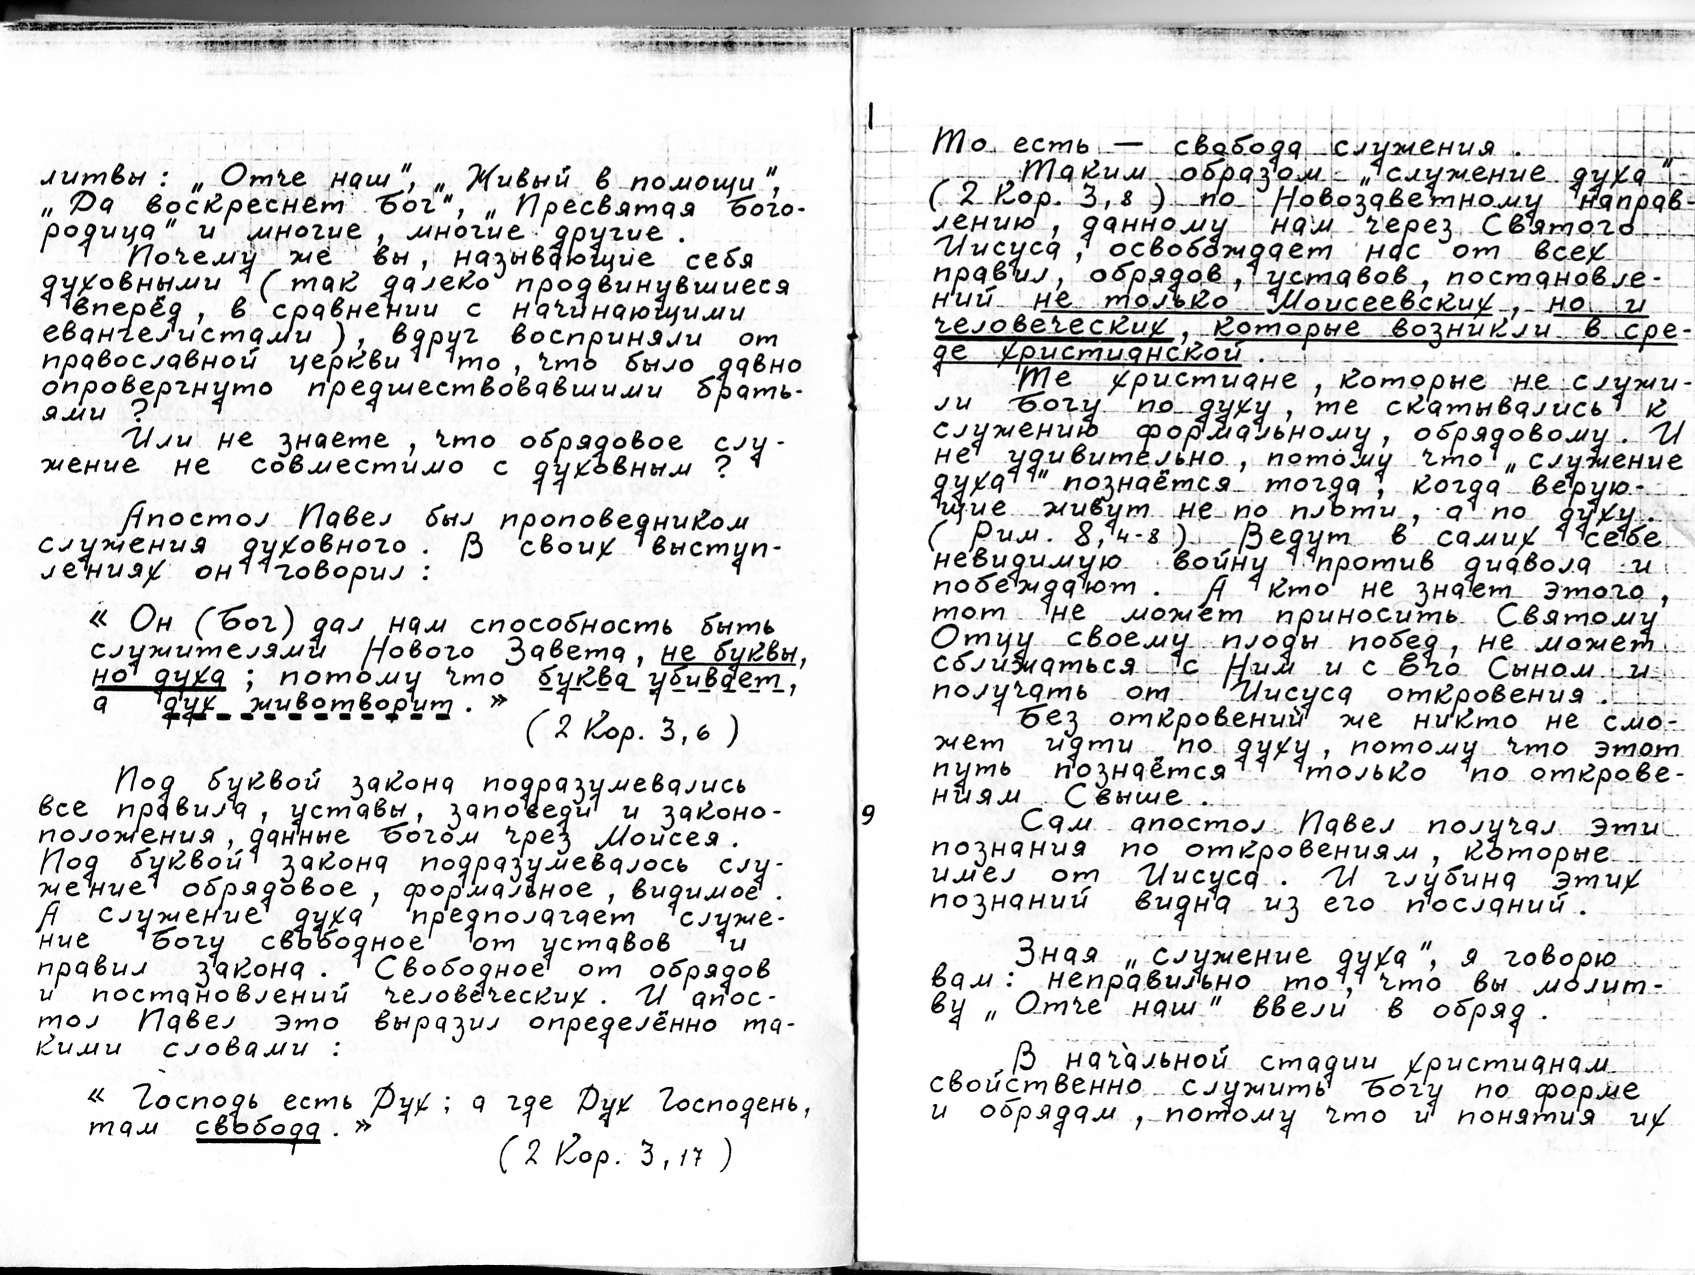 литвы: „Отче наш", „Живый в помощи",
„Да воскреснет Бог", „Пресвятая Бого-
родица" и многие, многие другие.
Почему же вы, называющие себя
духовными (так далеко продвинувшиеся
вперёд, в сравнении с начинающими
евангелистами), вдруг восприняли от
православной церкви то, что было давно
опровергнуто предшествовавшими брать-
ями?
Или не знаете, что обрядовое слу-
жение не совместимо с духовным?
Апостол Павел был проповедником
служения духовного. В своих выступ-
лениях он говорил:
« Он (Бог) дал нам способность быть
служителями Нового Завета, не буквы,
но духа; потому что буква убивает,
а дух животворит. »
(2 Кор. 3,6)
Под буквой закона подразумевались
все правила, уставы, заповеди и законо-
положения, данные Богом чрез Моисея.
Под буквой закона подразумевалось слу-
жение обрядовое, формальное, видимое.
А служение духа предполагает служе-
ние Богу свободное от уставов и
правил закона. Свободное от обрядов
и постановлений человеческих. И апос-
тол Павел это выразил определённо та-
кими словами:
« Господь есть Дух; а где Дух Господень,
там свобода. »
(2 Кор. 3,17)
9
То есть — свобода служения.
Таким образом „служение духа"
(2 Кор. 3,8) по Новозаветному направ-
лению, данному нам через Святого
Иисуса, освобождает нас от всех
правил, обрядов, уставов, постановле-
ний не только Моисеевских, но и
человеческих, которые возникли в сре-
де христианской.
Те христиане, которые не служи-
ли Богу по духу, те скатывались к
служению формальному, обрядовому. И
не удивительно, потому что „служение
духа" познаётся тогда, когда верую-
щие живут не по плоти, а по духу.
(Рим. 8,4-8) Ведут в самих себе
невидимую войну против диавола и
побеждают. А кто не знает этого,
тот не может приносить Святому
Отцу своему плоды побед, не может
сближаться с Ним и с Его Сыном и
получать от Иисуса откровения.
Без откровений же никто не смо-
жет идти по духу, потому что этот
путь познаётся только по открове-
ниям Свыше.
Сам апостол Павел получал эти
познания по откровениям, которые
имел от Иисуса. И глубина этих
познаний видна из его посланий.
Зная „служение духа", я говорю
вам: неправильно то, что вы молит-
ву „Отче наш" ввели в обряд.
В начальной стадии христианам
свойственно служить Богу по форме
и обрядам, потому что и понятия их